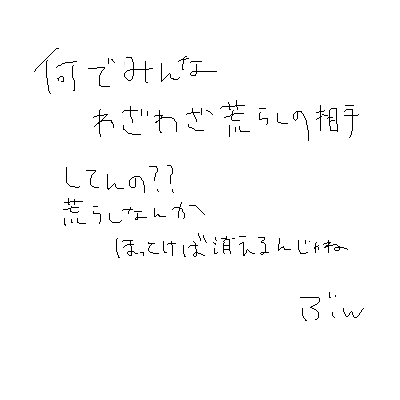 何でみんな
わざわざ荒らしの相手
してんの??
荒らしなんか
ほっとけば消えるんじゃね